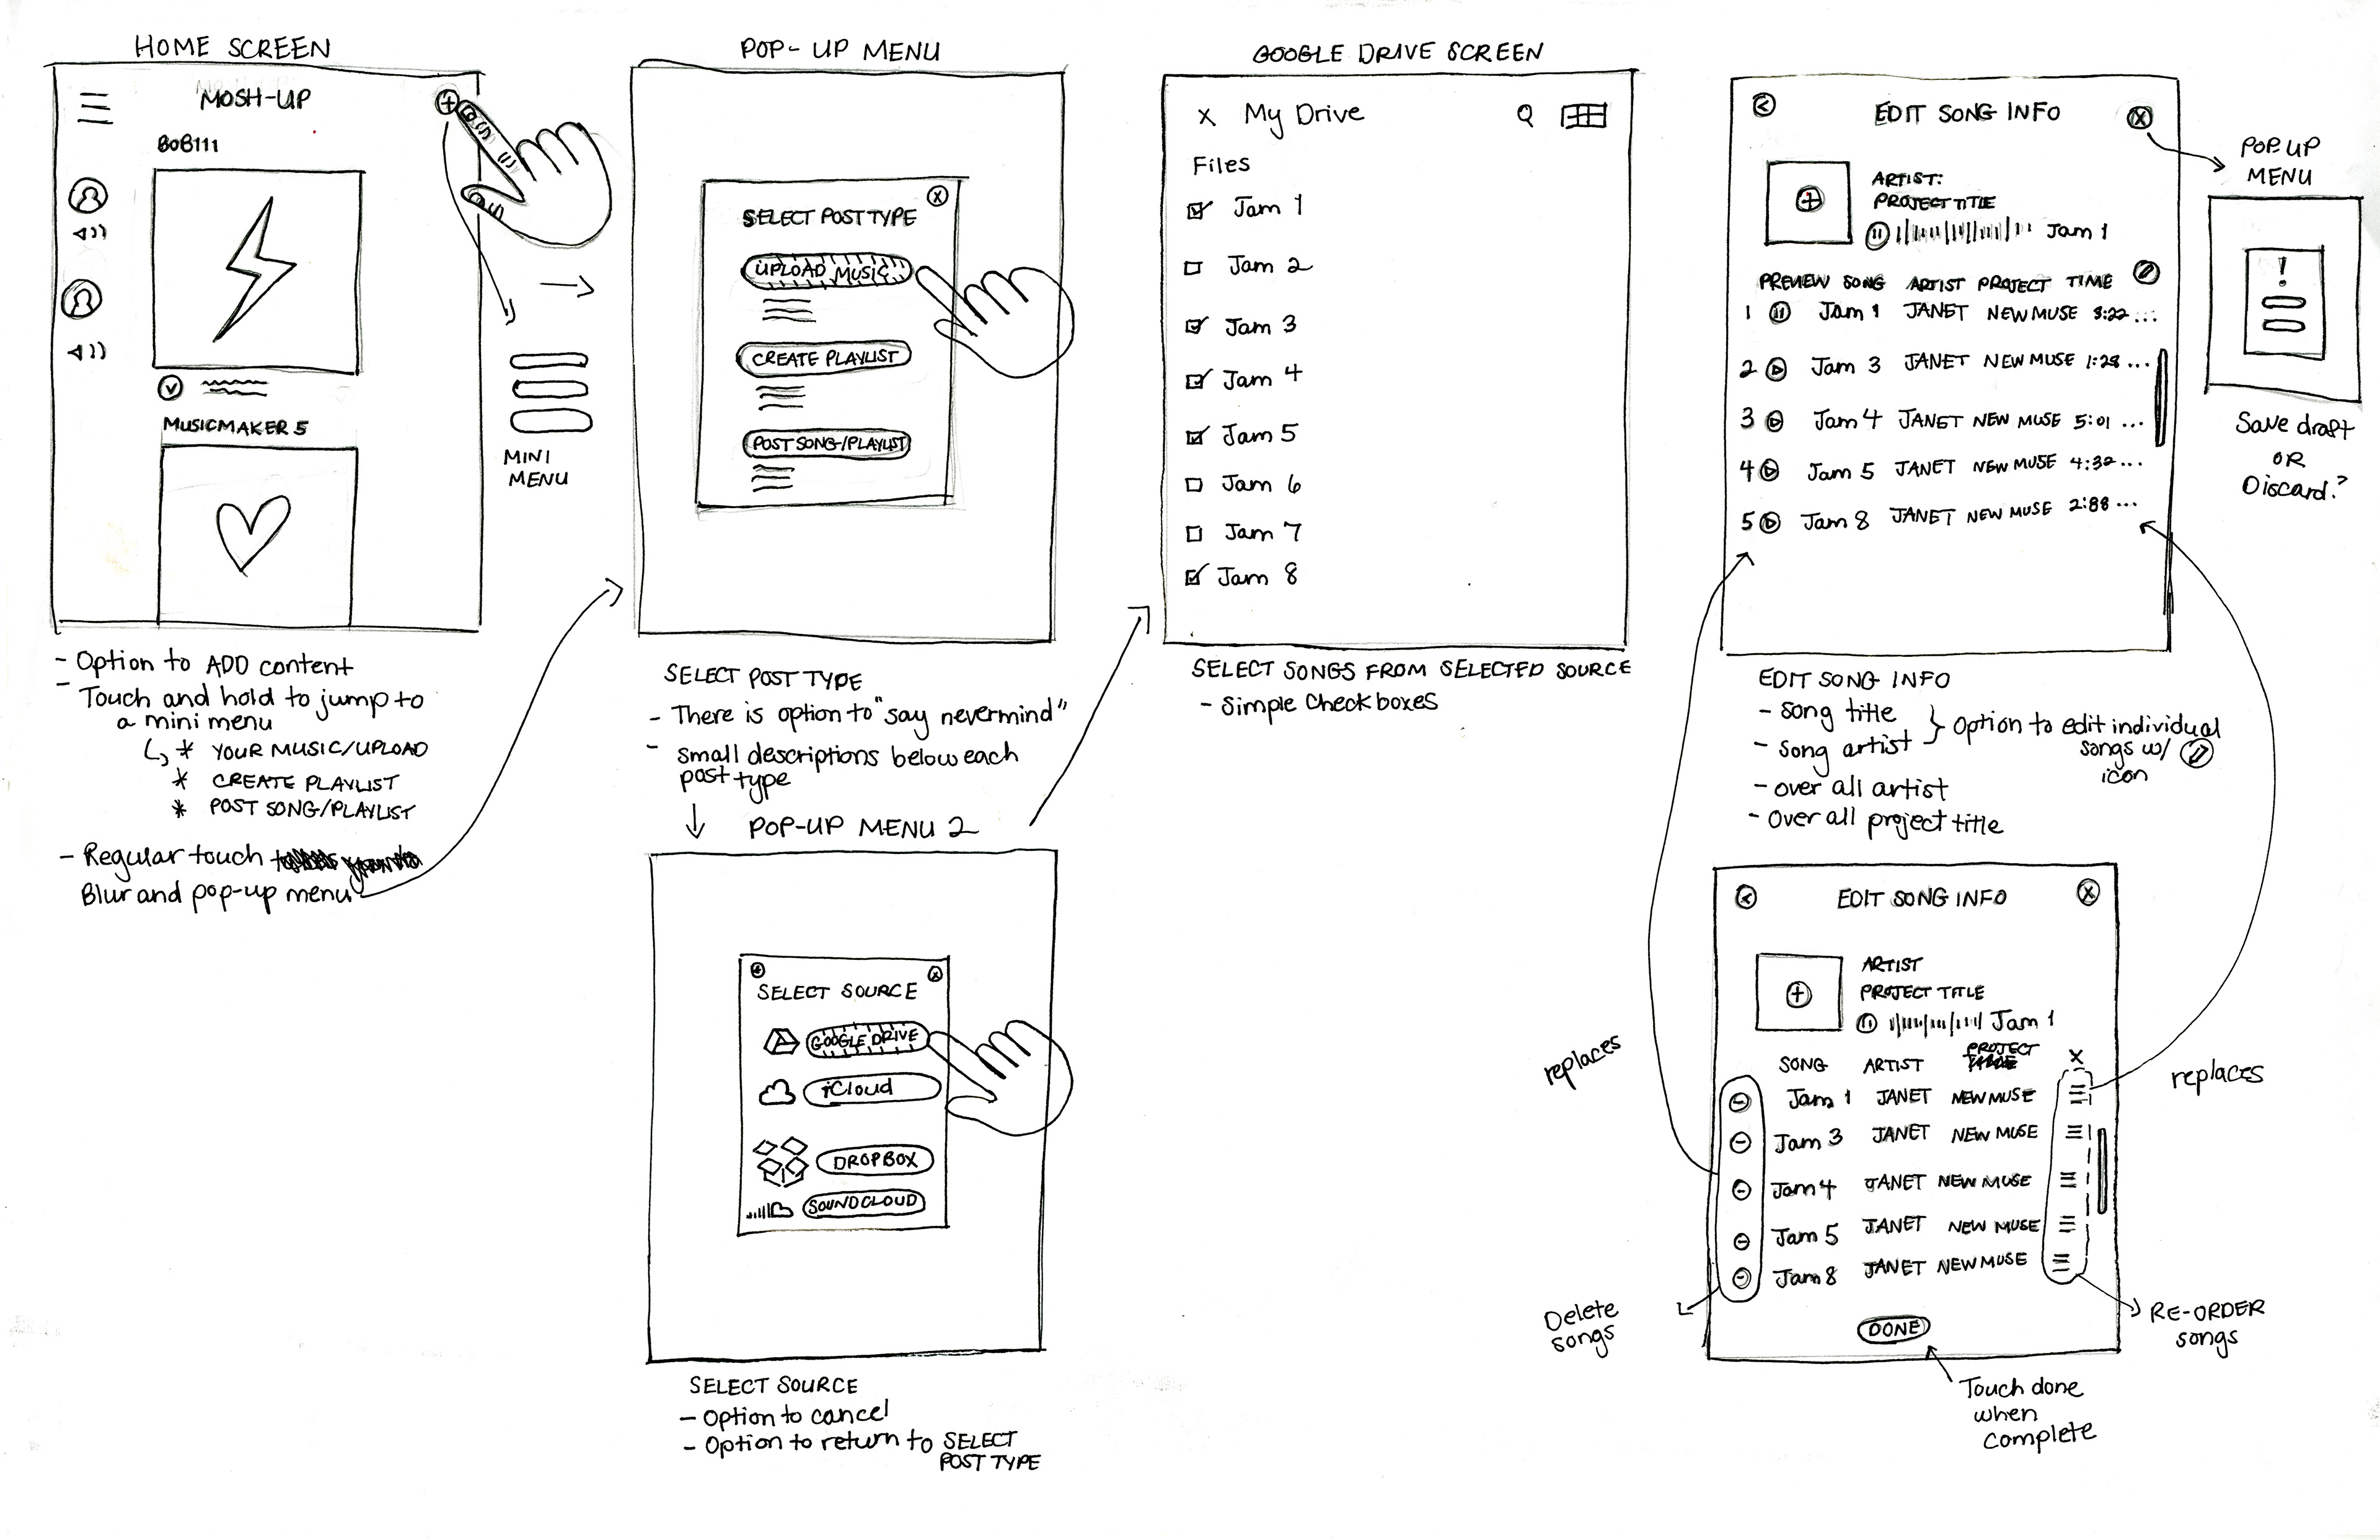 HOME SCREEN
MOSH-UP
BOB111
MUSICMAKER 5
MINI
MENU
- Option to ADD content
- Touch and hold to jump to
a mini menu
* YOUR MUSIC/UPLOAD
* CREATE PLAYLIST
* POST SONG/PLAYLIST
- Regular touch
Blur and pop-up menu
POP-UP MENU
SELECT POST TYPE
UPLOAD MUSIC
CREATE PLAYLIST
POST SONG/PLAYLIST
SELECT POST TYPE
- There is option to "say nevermind"
- small descriptions below each
post type
POP-UP MENU 2
SELECT SOURCE
GOOGLE DRIVE
iCloud
DROPBOX
SOUNDCLOUD
SELECT SOURCE
- Option to cancel
- Option to return to SELECT
POST TYPE
GOOGLE DRIVE SCREEN
X My Drive
Files
Jam 1
Jam 2
Jam 3
Jam 4
Jam 5
Jam 6
Jam 7
Jam 8
SELECT SONGS FROM SELECTED SOURCE
- Simple Checkboxes
EDIT SONG INFO
ARTIST:
PROJECT TITLE
Jam 1
PREVIEW SONG ARTIST PROJECT TIME
1 Jam 1 JANET NEW MUSE 3:22 ...
2 Jam 3 JANET NEW MUSE 1:28 ...
3 Jam 4 JANET NEW MUSE 5:01 ...
4 Jam 5 JANET NEW MUSE 4:32 ...
5 Jam 8 JANET NEW MUSE 2:88 ...
POP UP
MENU
!
Save draft
OR
Discard?
EDIT SONG INFO
- song title
- song artist } Option to edit individual
songs w/
icon
- over all artist
- over all project title
EDIT SONG INFO
ARTIST
PROJECT TITLE
Jam 1
SONG ARTIST PROJECT X
Jam 1 JANET NEW MUSE
Jam 3 JANET NEW MUSE
Jam 4 JANET NEW MUSE
Jam 5 JANET NEW MUSE
Jam 8 JANET NEW MUSE
DONE
replaces
replaces
Delete
songs
RE-ORDER
songs
Touch done
when
complete